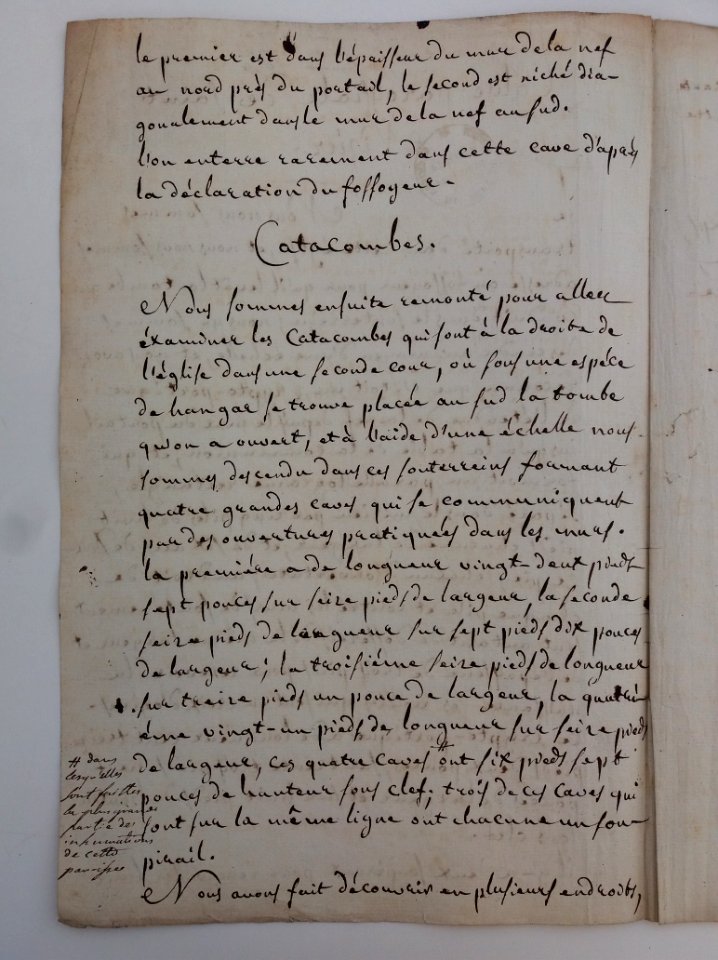 le premier est dans l'épaisseur du mur de la nef
au nord près du portail, le second est niché dia-
gonalement dans le mur de la nef au sud.
l'on enterre rarement dans cette cave d'après
la déclaration du fossoyeur -
Catacombes.
Nous sommes ensuite remonté pour aller
éxaminer les Catacombes qui sont à la droite de
l'église dans une seconde cour, où sous une espéce
de hangar se trouve placée au sud la tombe
qu'on a ouvert, et à l'aide d'une échelle nous
sommes descendu dans ces souterreins formant
quatre grandes caves qui se communiquent
par des ouvertures pratiquées dans les murs.
la premiére a de longueur vingt-deux pieds
sept pouces sur seize pieds de largeur, la seconde
seize pieds de longueur sur sept pieds dix pouces
de largeur; la troisiéme seize pieds de longueur
sur treize pieds un pouce de largeur, la quatri-
éme vingt-un pieds de longueur sur seize pieds
de largeur, ces quatre caves # ont six pieds sept
pouces de hauteur sous clef. trois de ces caves qui
sont sur la même ligne ont chacune un sou-
pirail.
Nous avons fait découvrir en plusieurs endroits,
# dans
lesquelles
sont faittes
la plus grande
partie des
inhumations
de cette
paroisse